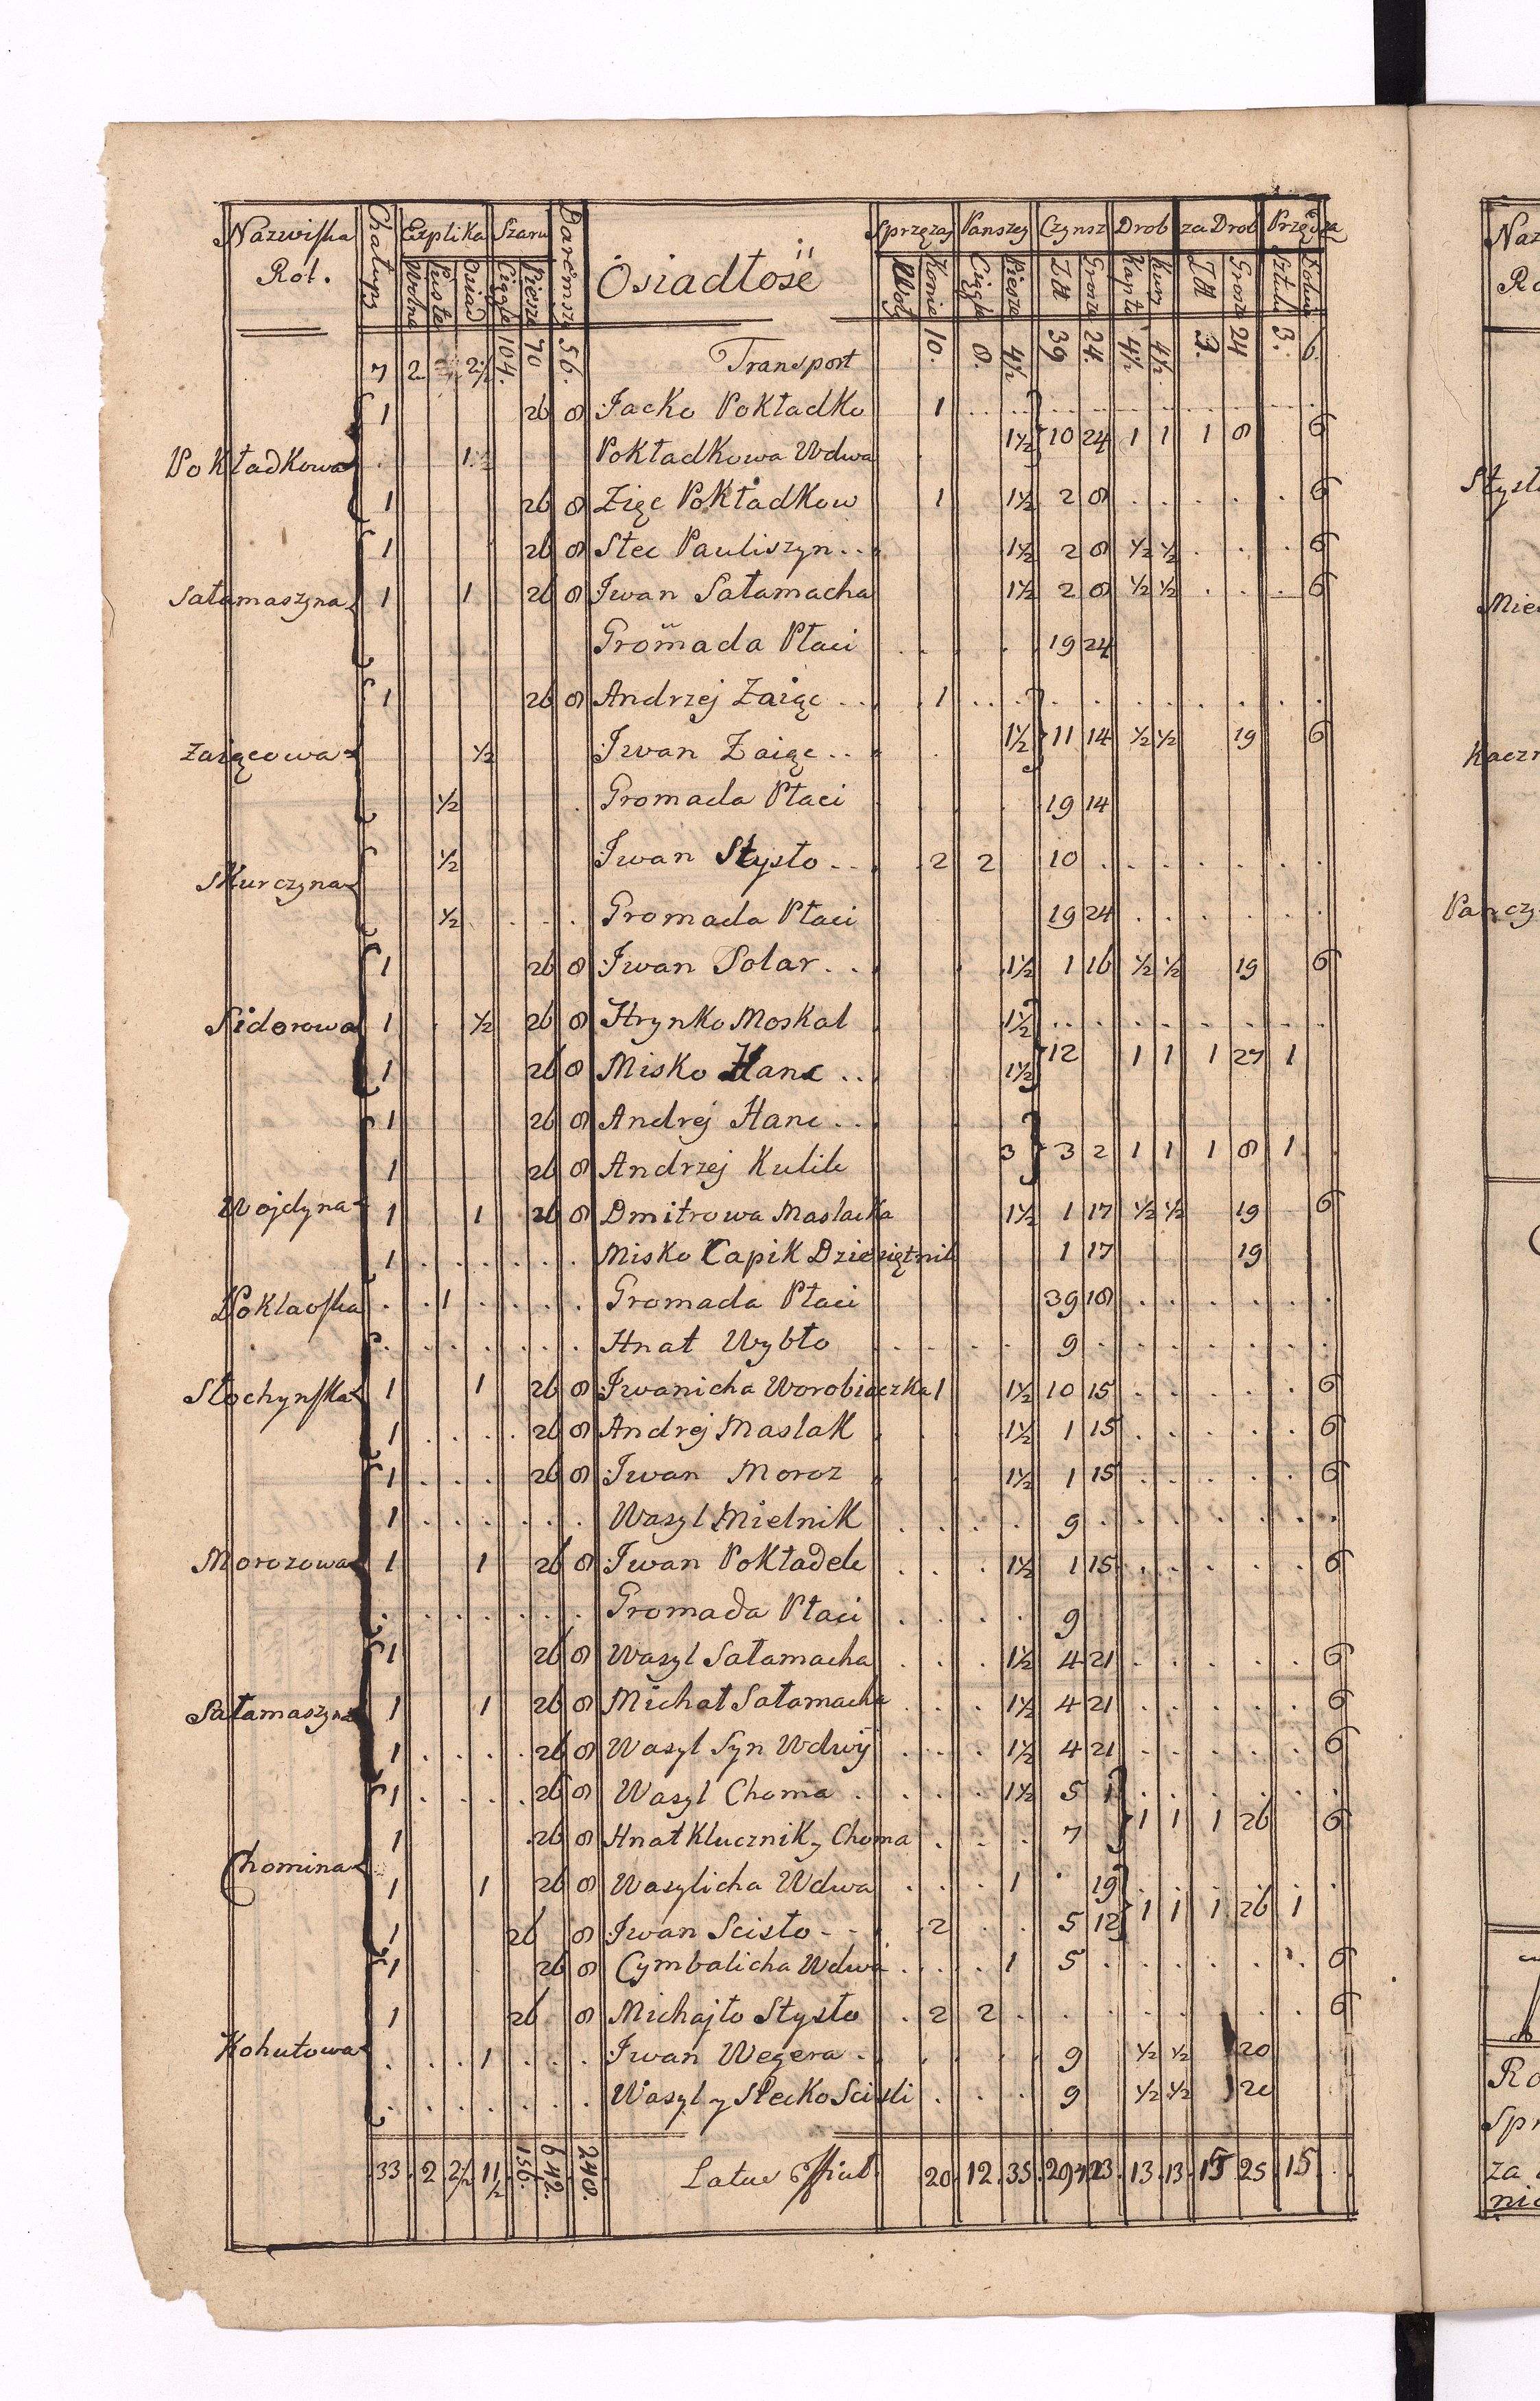 Nazwiska Rol. Chałupy Explika Szarw Daremszy Osiadłość Sprzęzaj Panszcz Czynsz Drob za Drob Przędza
Wolna Puste Osiad Ciągłe Piesze Woły Konie Ciągłe Piesze Zł Grosze Kapła Kury Zł Grosz Sztuki
7 2 2½ 104. 70 56. Transport 10. 8. 4½ 39 24. 4½ 4½ 3. 24 3. 6.
1 26 8 Jacko Pokładko 1
Pokładkowa 1 Pokładkowa Wdwa 1½ 10 24 1 1 1 8 6
1 26 8 Zięc Pokładkow 1 1½ 2 8 6
1 26 8 Stec Pauliszyn 1½ 2 8 ½ ½ 6
Sałamaszyna 1 1 26 8 Iwan Sałamacha 1½ 2 8 ½ ½ 6
Gromada Płaci 19 24
1 26 8 Andrzej Zaiąc 1
Zaiącowa ½ Iwan Zaiąc 1½ 11 14 ½ ½ 19 6
½ Gromada Płaci 19 14
Skurczyna ½ Iwan Stysło 2 2 10
½ Gromada Płaci 19 24
1 26 8 Iwan Solar 1½ 1 16 ½ ½ 19 6
Sidorowa 1 ½ 26 8 Hrynko Moskal 1½
1 26 8 Misko Hanc 1½ 12 1 1 1 27 1
1 26 8 Andrej Hanc
1 26 8 Andrzej Kulik 3 3 2 1 1 1 8 1
Wojdyna 1 1 26 8 Dmitrowa Maslacka 1½ 1 17 ½ ½ 19 6
1 Misko Capik Dziesiętnik 1 17 19
1 Gromada Płaci 39 18
Hnat Wybło 9
Stochynska 1 1 26 8 Iwanicha Worobiaczka 1 1½ 10 15 6
1 26 8 Andrej Maslak 1½ 1 15 6
1 26 8 Iwan Moroz 1½ 1 15 6
1 Wasyl Mielnik 9
Morozowa 1 1 26 8 Iwan Pokładek 1½ 1 15 6
Gromada Płaci 9
1 26 8 Wasyl Sałamacha 1½ 4 21 6
Sałamaszyna 1 1 26 8 Michał Sałamacha 1½ 4 21 6
1 26 8 Wasyl Syn Wdwy 1½ 4 21 6
1 26 8 Wasyl Choma 1½ 5 1
1 26 8 Hnat Klucznik y Choma 7 1 1 1 26 6
Chomina 1 1 26 8 Wasylicha Wdwa 1 19
1 26 8 Iwan Scisło 2 5 12 1 1 1 26 1
1 26 8 Cymbalicha Wdwa 1 5 6
1 26 8 Michajło Stysło 2 2 6
Kohutowa 1 Iwan Wegera 9 ½ ½ 20
Wasyl y Stecko Scisli 9 ½ ½ 20
33 2 2½ 11½ 156. 642. 240. Latus 20 12 35 13 13 15 25 15
Naz
R
Styst
Mie
Kaczn
Pan cz
Ro
Spr
za
nic